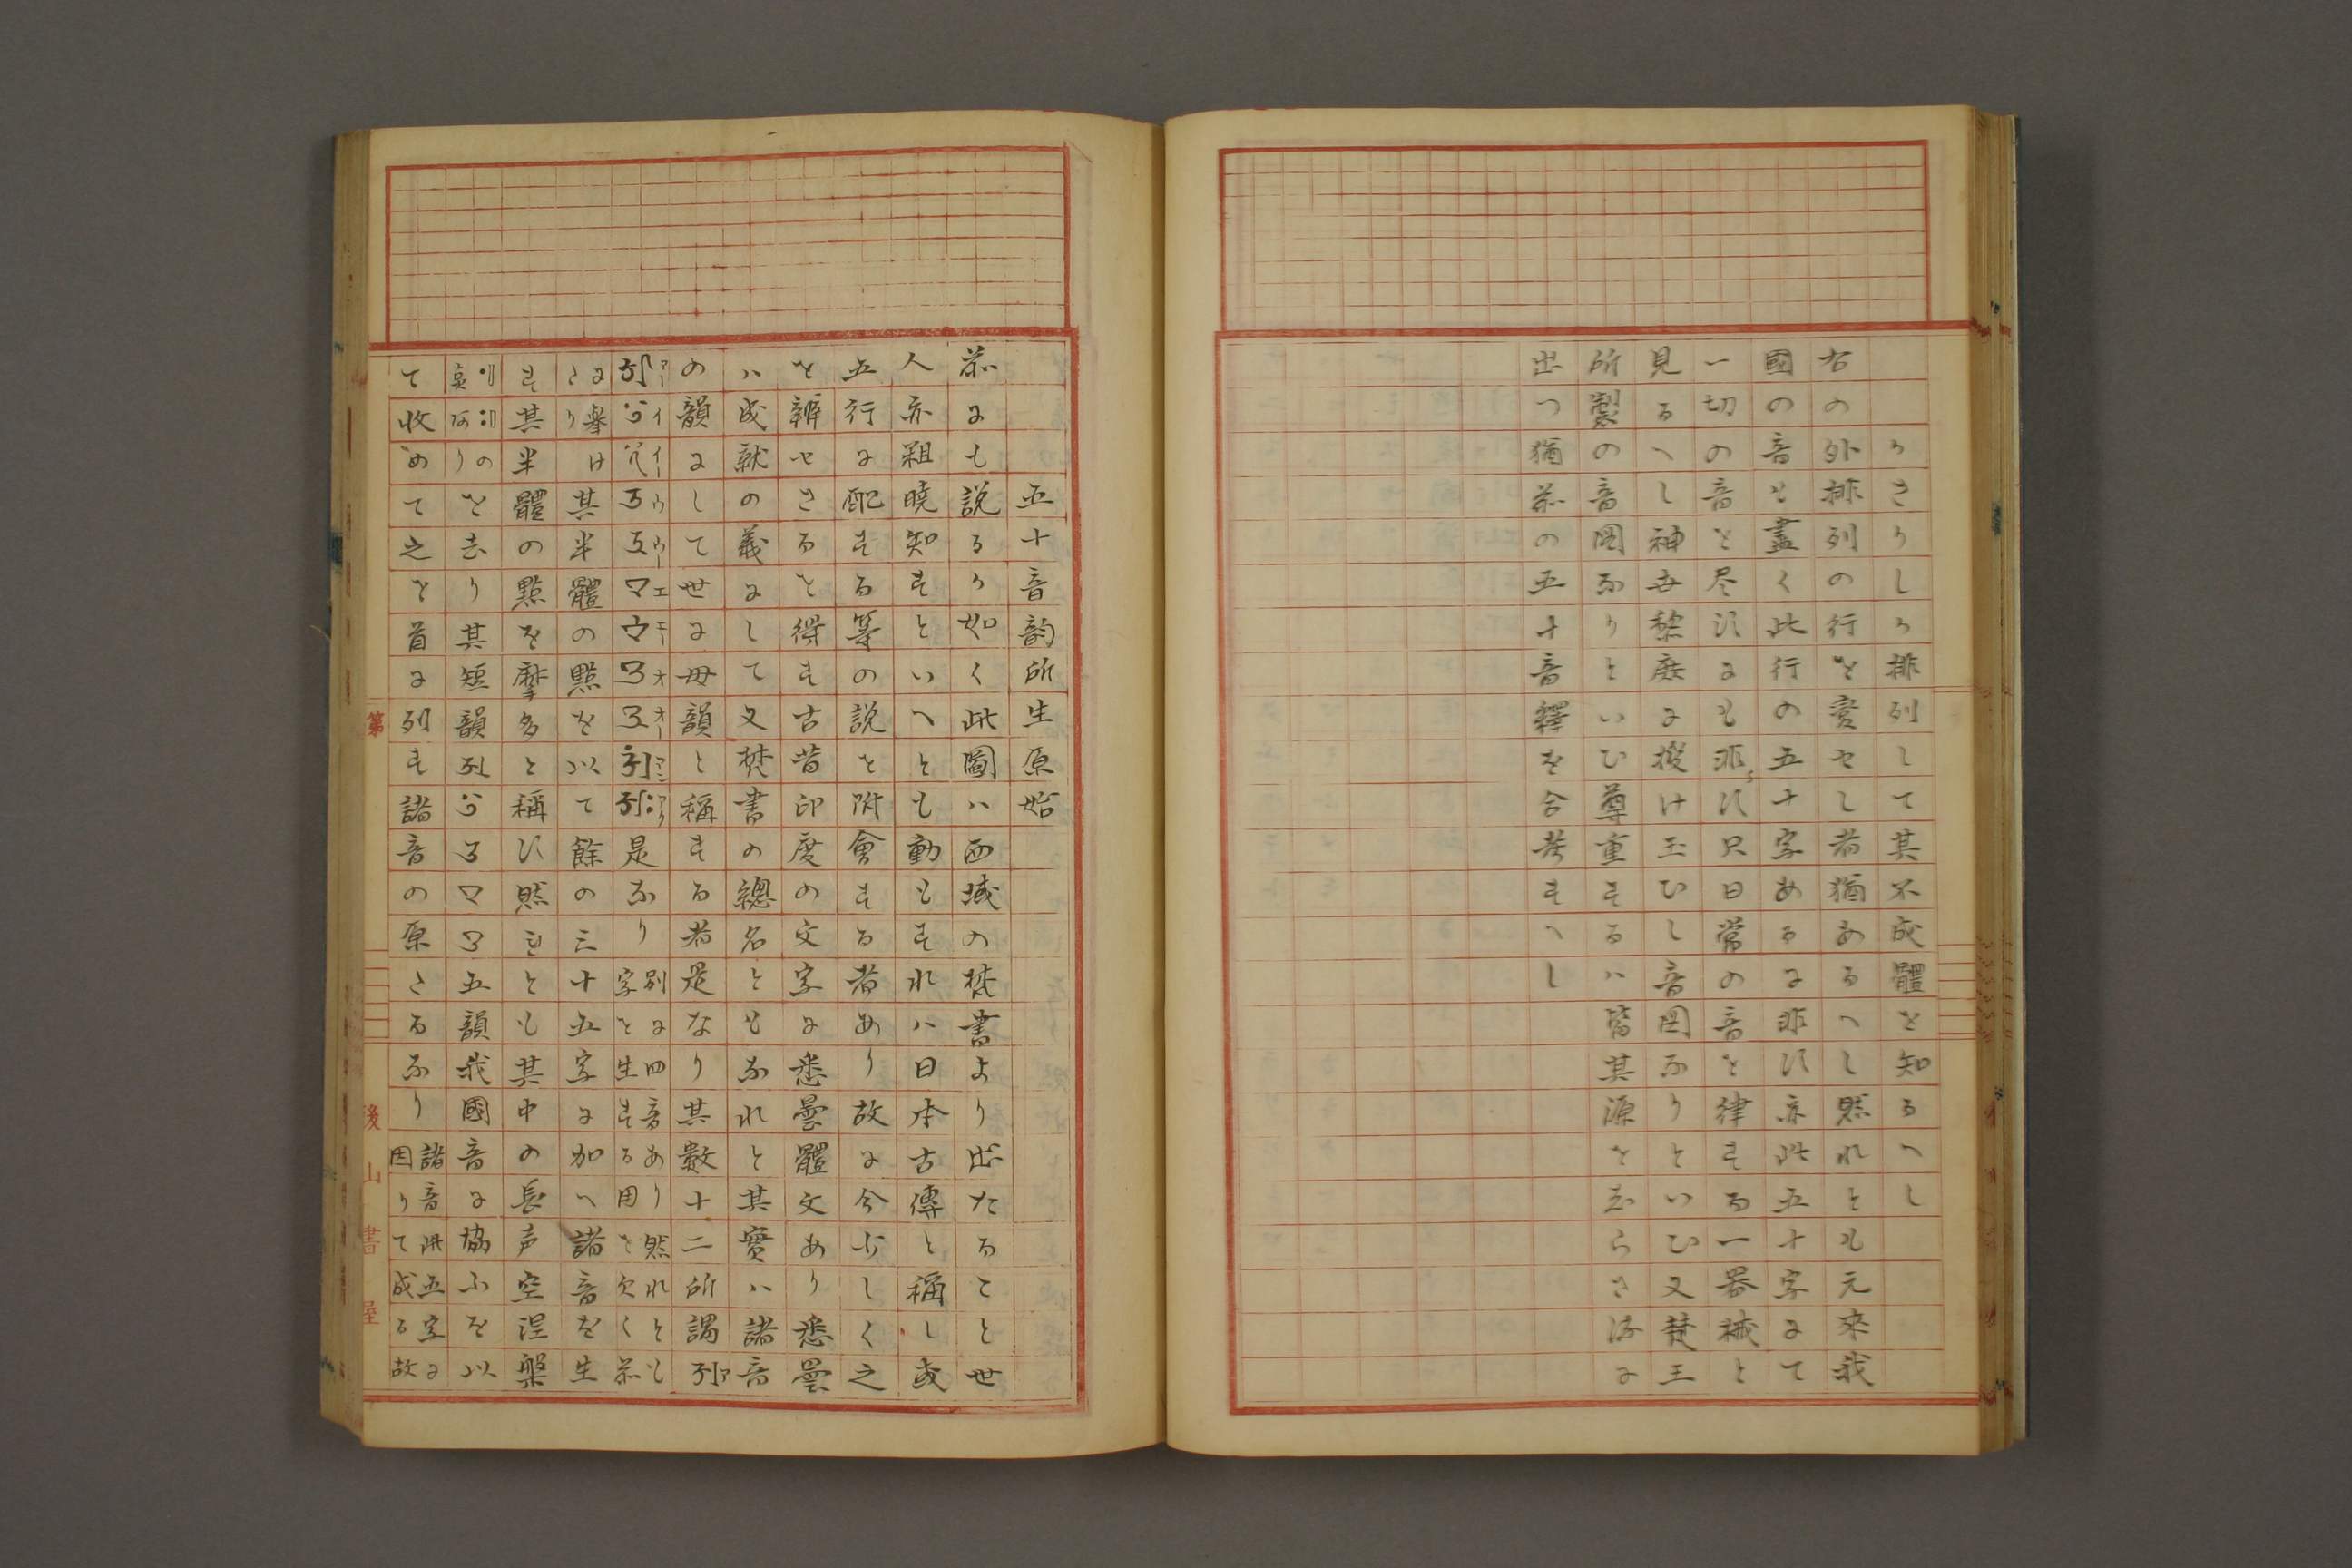 かきりしか排列して其不成體を知るへし
右の外排列の行を変せし者猶あるへし然れとも元來我
國の音も盡く此行の五十字あるに非す亦此五十字にて
一切の音を尽すにも非らす只日常の音を律する一器械と
見るへし神世黎庶に授け玉ひし音図なりといひ又梵王
所製の音図なりといひ尊重するハ皆其源をしらさる
出つ猶前の五十音釋を合考すへし
五十音韵所生原始
前にも説るか如く此圖ハ西域の梵書より出たること世
人亦粗曉知すといへとも動もすれハ日本古傳と稱し或
五行に配する等の説を附會する者あり故に今少しく之
を辨せさるを得す古昔印度の文字に悉曇體文あり悉曇
ハ成就の義にして又梵書の總名ともなれと其實ハ諸音
の韻にして世に母韻と稱する者是なり其數十二所謂
アー イ イー ウ ウー エ エー オ オー アン アク 是なり 別に四音あり然れとも字を生する用を欠く前
に擧けさり 其半體の點を以て餘の三十五字に加へ諸音を生
す其半體の點を摩多と稱す然しとも其中の長声空涅槃
のを去り其短韻 五韻我國音に協ふを以
て收めて之を首に列す諸音の原さるなり 諸音此五字に因りて成る故
第
後山書屋